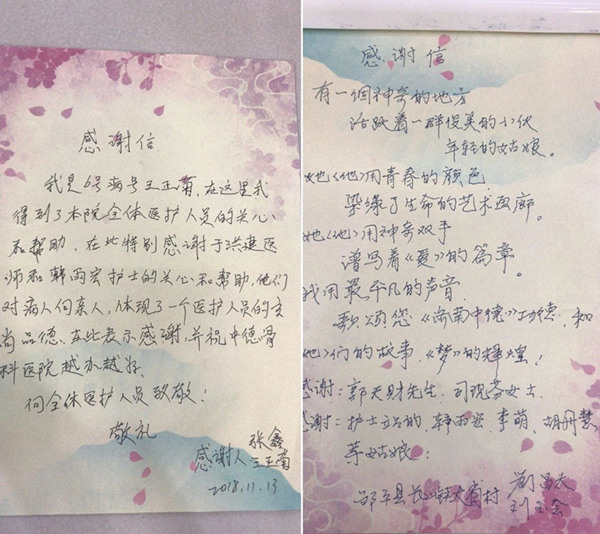 感谢信
我是6号病号王正菊，在这里我
得到了本院全体医护人员的关心
和帮助，在此特别感谢于洪建医
师和韩雨宏护士的关心和帮助，他们
对病人何亲人，体现了一个医护人员的
尚品德，在此表示感谢，并祝中德骨
科医院越办越好。
向全体医护人员致敬！
敬礼
张鑫
感谢人 王正菊
2018.11.13
感谢信
有一個神奇的地方
活跃着一群俊美的小伙
年轻的姑娘。
她《他》用青春的颜色
染绿了生命的艺术画廊。
她《他》用神奇双手
谱写着《爱》的篇章。
我用最平凡的声音
歌颂您《济南中德》功德，和
他》们的故事，《梦》的辉煌！
感谢：郭天财先生，司现芬女士
感谢：护士 韩雨宏 李萌，胡丹慧
等姑娘：
邹平县长山镇大省村 刘昌太